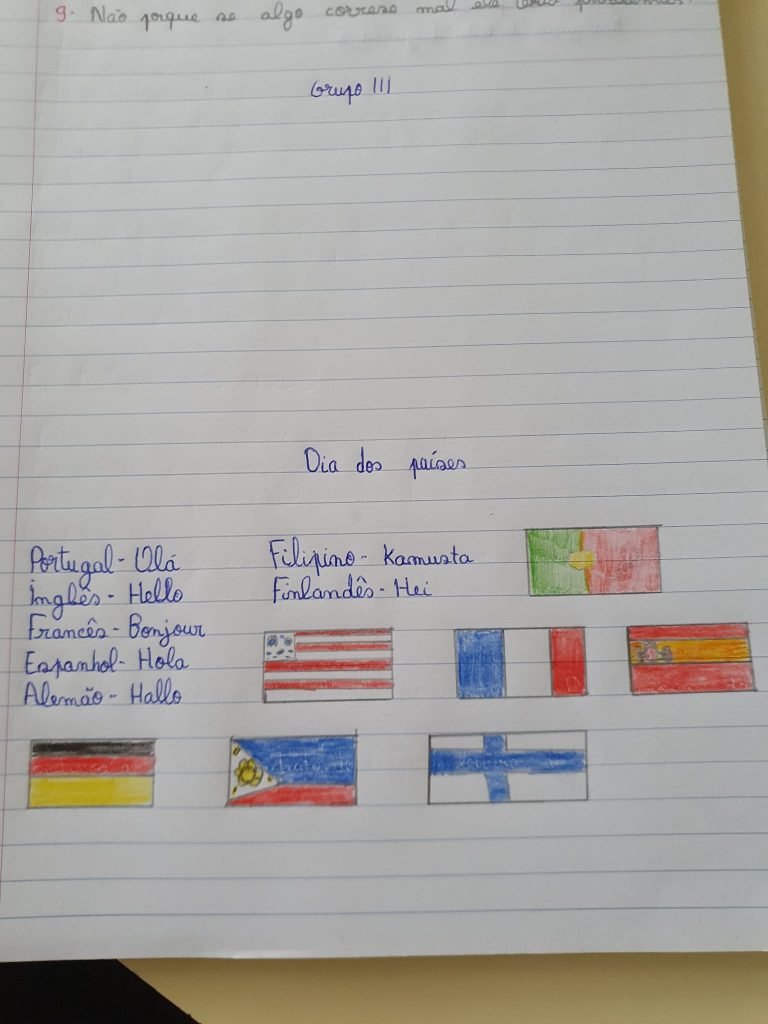 9. Não porque se algo corresse mal ele teria problemas.
Grupo III
Dia dos países
Portugal - Olá
Inglês - Hello
Francês - Bonjour
Espanhol - Hola
Alemão - Hallo
Filipino - Kamusta
Finlandês - Hei